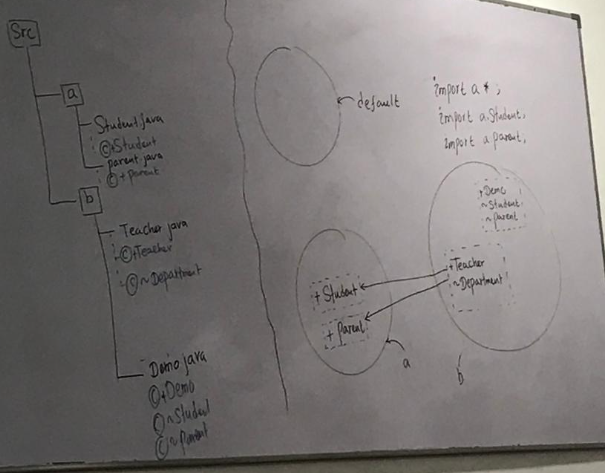 Src
a
Student.java
C+Student
parent.java
C+parent
b
Teacher java
C+Teacher
C~Department
Demo java
C+Demo
C~Student
C~Parent
default
import a *;
import a.Student;
import a parent;
+Demo
~Student
~parent
+Teacher
~Department
+ Student
+ Parent
a
b